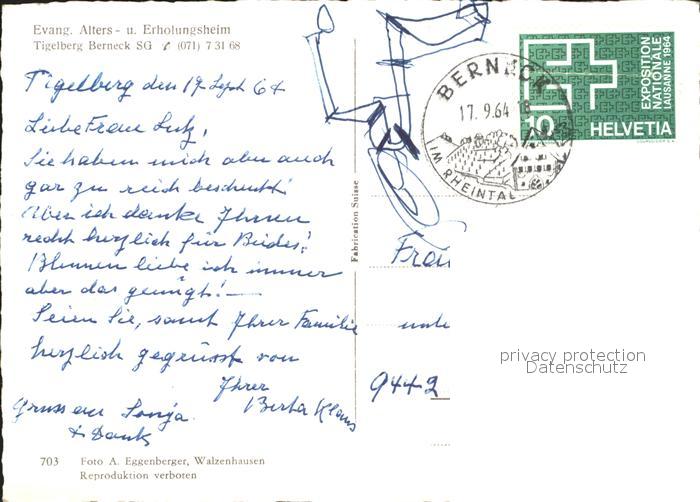 Evang. Alters- u. Erholungsheim
Tigelberg Berneck SG ✆ (071) 7 31 68
Tigelberg den 17. Sept 64
Liebe Frau Lutz,
Sie haben mich aber auch
gar zu reich beschenkt!
Aber ich danke Ihnen
recht herzlich für Beides!
Blumen liebe ich immer
aber das genügt! —
Seien Sie, samt Ihrer Familie
herzlich gegrüsst von
Ihrer
Berta Klaus
Gruss an Sonja.
+ Dank
703 Foto A. Eggenberger, Walzenhausen
Reproduktion verboten
Fabrication Suisse
BERNECK
17. 9. 64 18
IM RHEINTAL
EXPOSITION
NATIONALE
LAUSANNE 1964
10 HELVETIA
COURVOISIER S.A.
Frau
9442
privacy protection
Datenschutz